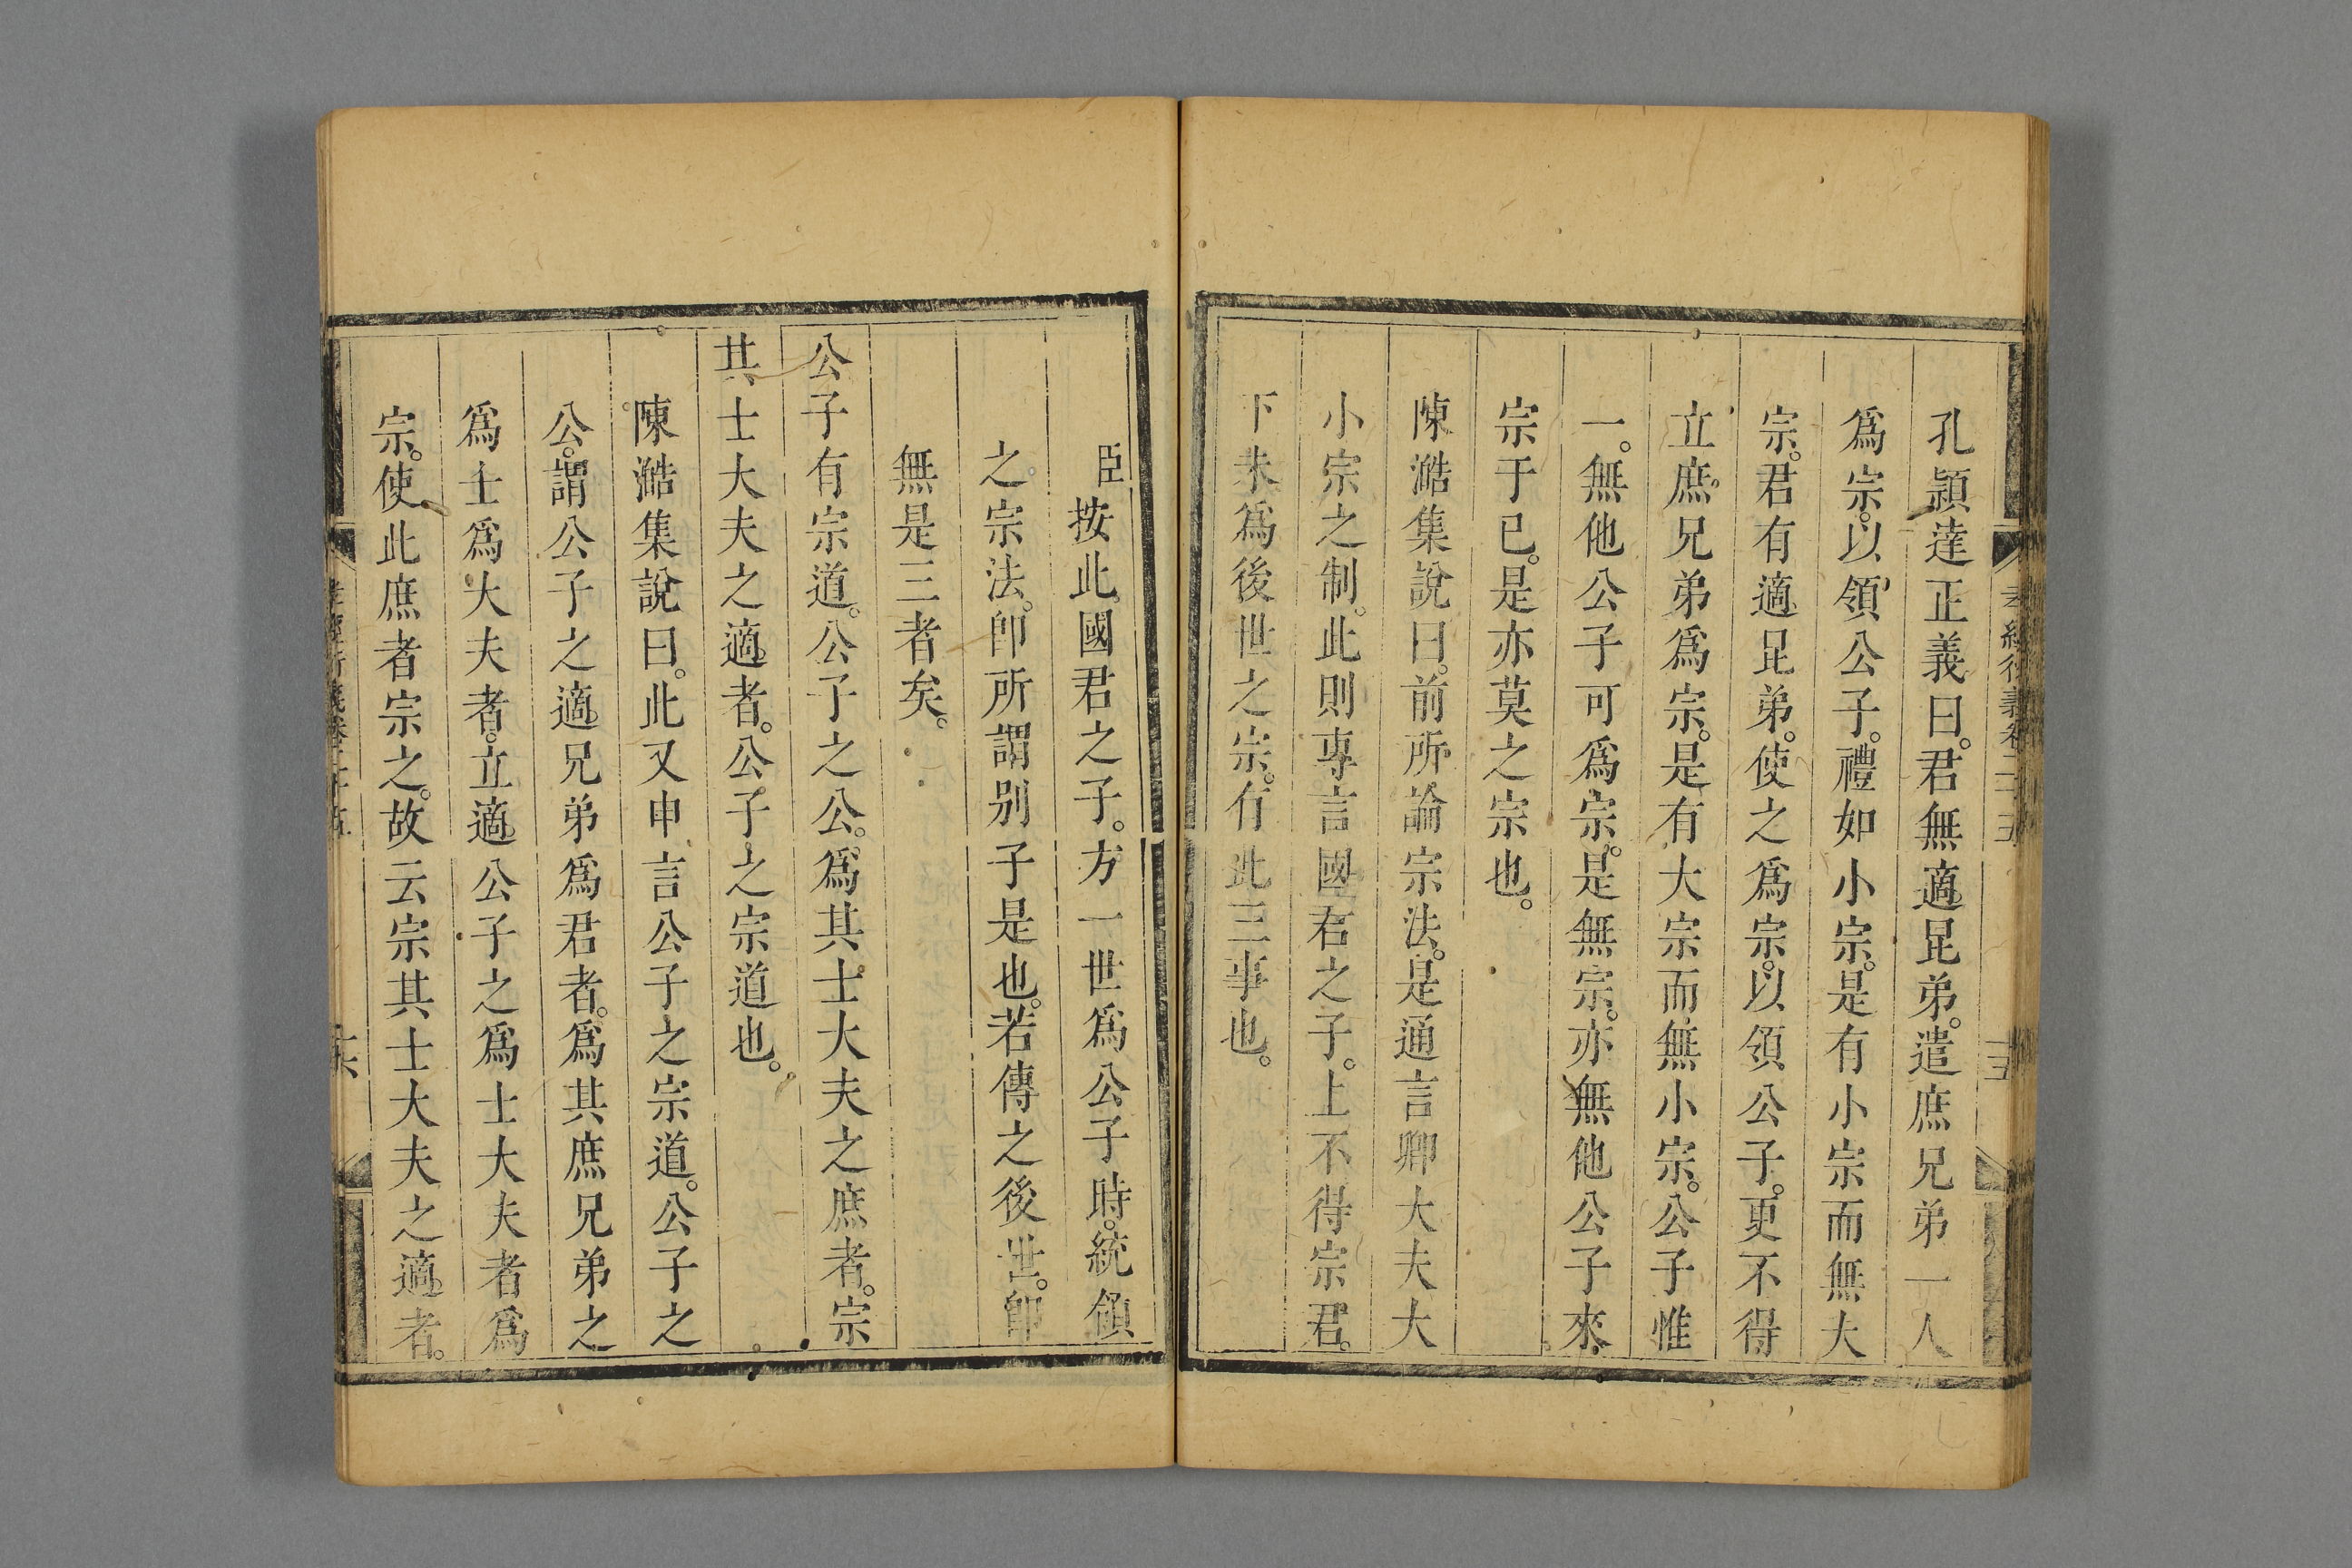 孔頴達正義曰。君無適昆弟。遣庶兄弟一人
爲宗。以領公子。禮如小宗。是有小宗而無大
宗。君有適昆弟。使之爲宗。以領公子。更不得
立庶兄弟爲宗。是有大宗而無小宗。公子惟
一。無他公子可爲宗。是無宗。亦無他公子來
宗于已。是亦莫之宗也。
陳澔集說曰。前所論宗法。是通言卿大夫大
小宗之制。此則專言國君之子。上不得宗君。
下未爲後世之宗。有此三事也。
臣按此。國君之子。方一世爲公子時。統領
之宗法。卽所謂別子是也。若傳之後世。卽
無是三者矣。
公子有宗道。公子之公。爲其士大夫之庶者。宗
其士大夫之適者。公子之宗道也。
陳澔集說曰。此又申言公子之宗道。公子之
公。謂公子之適兄弟爲君者。爲其庶兄弟之
爲士爲大夫者。立適公子之爲士大夫者爲
宗。使此庶者宗之。故云宗其士大夫之適者。